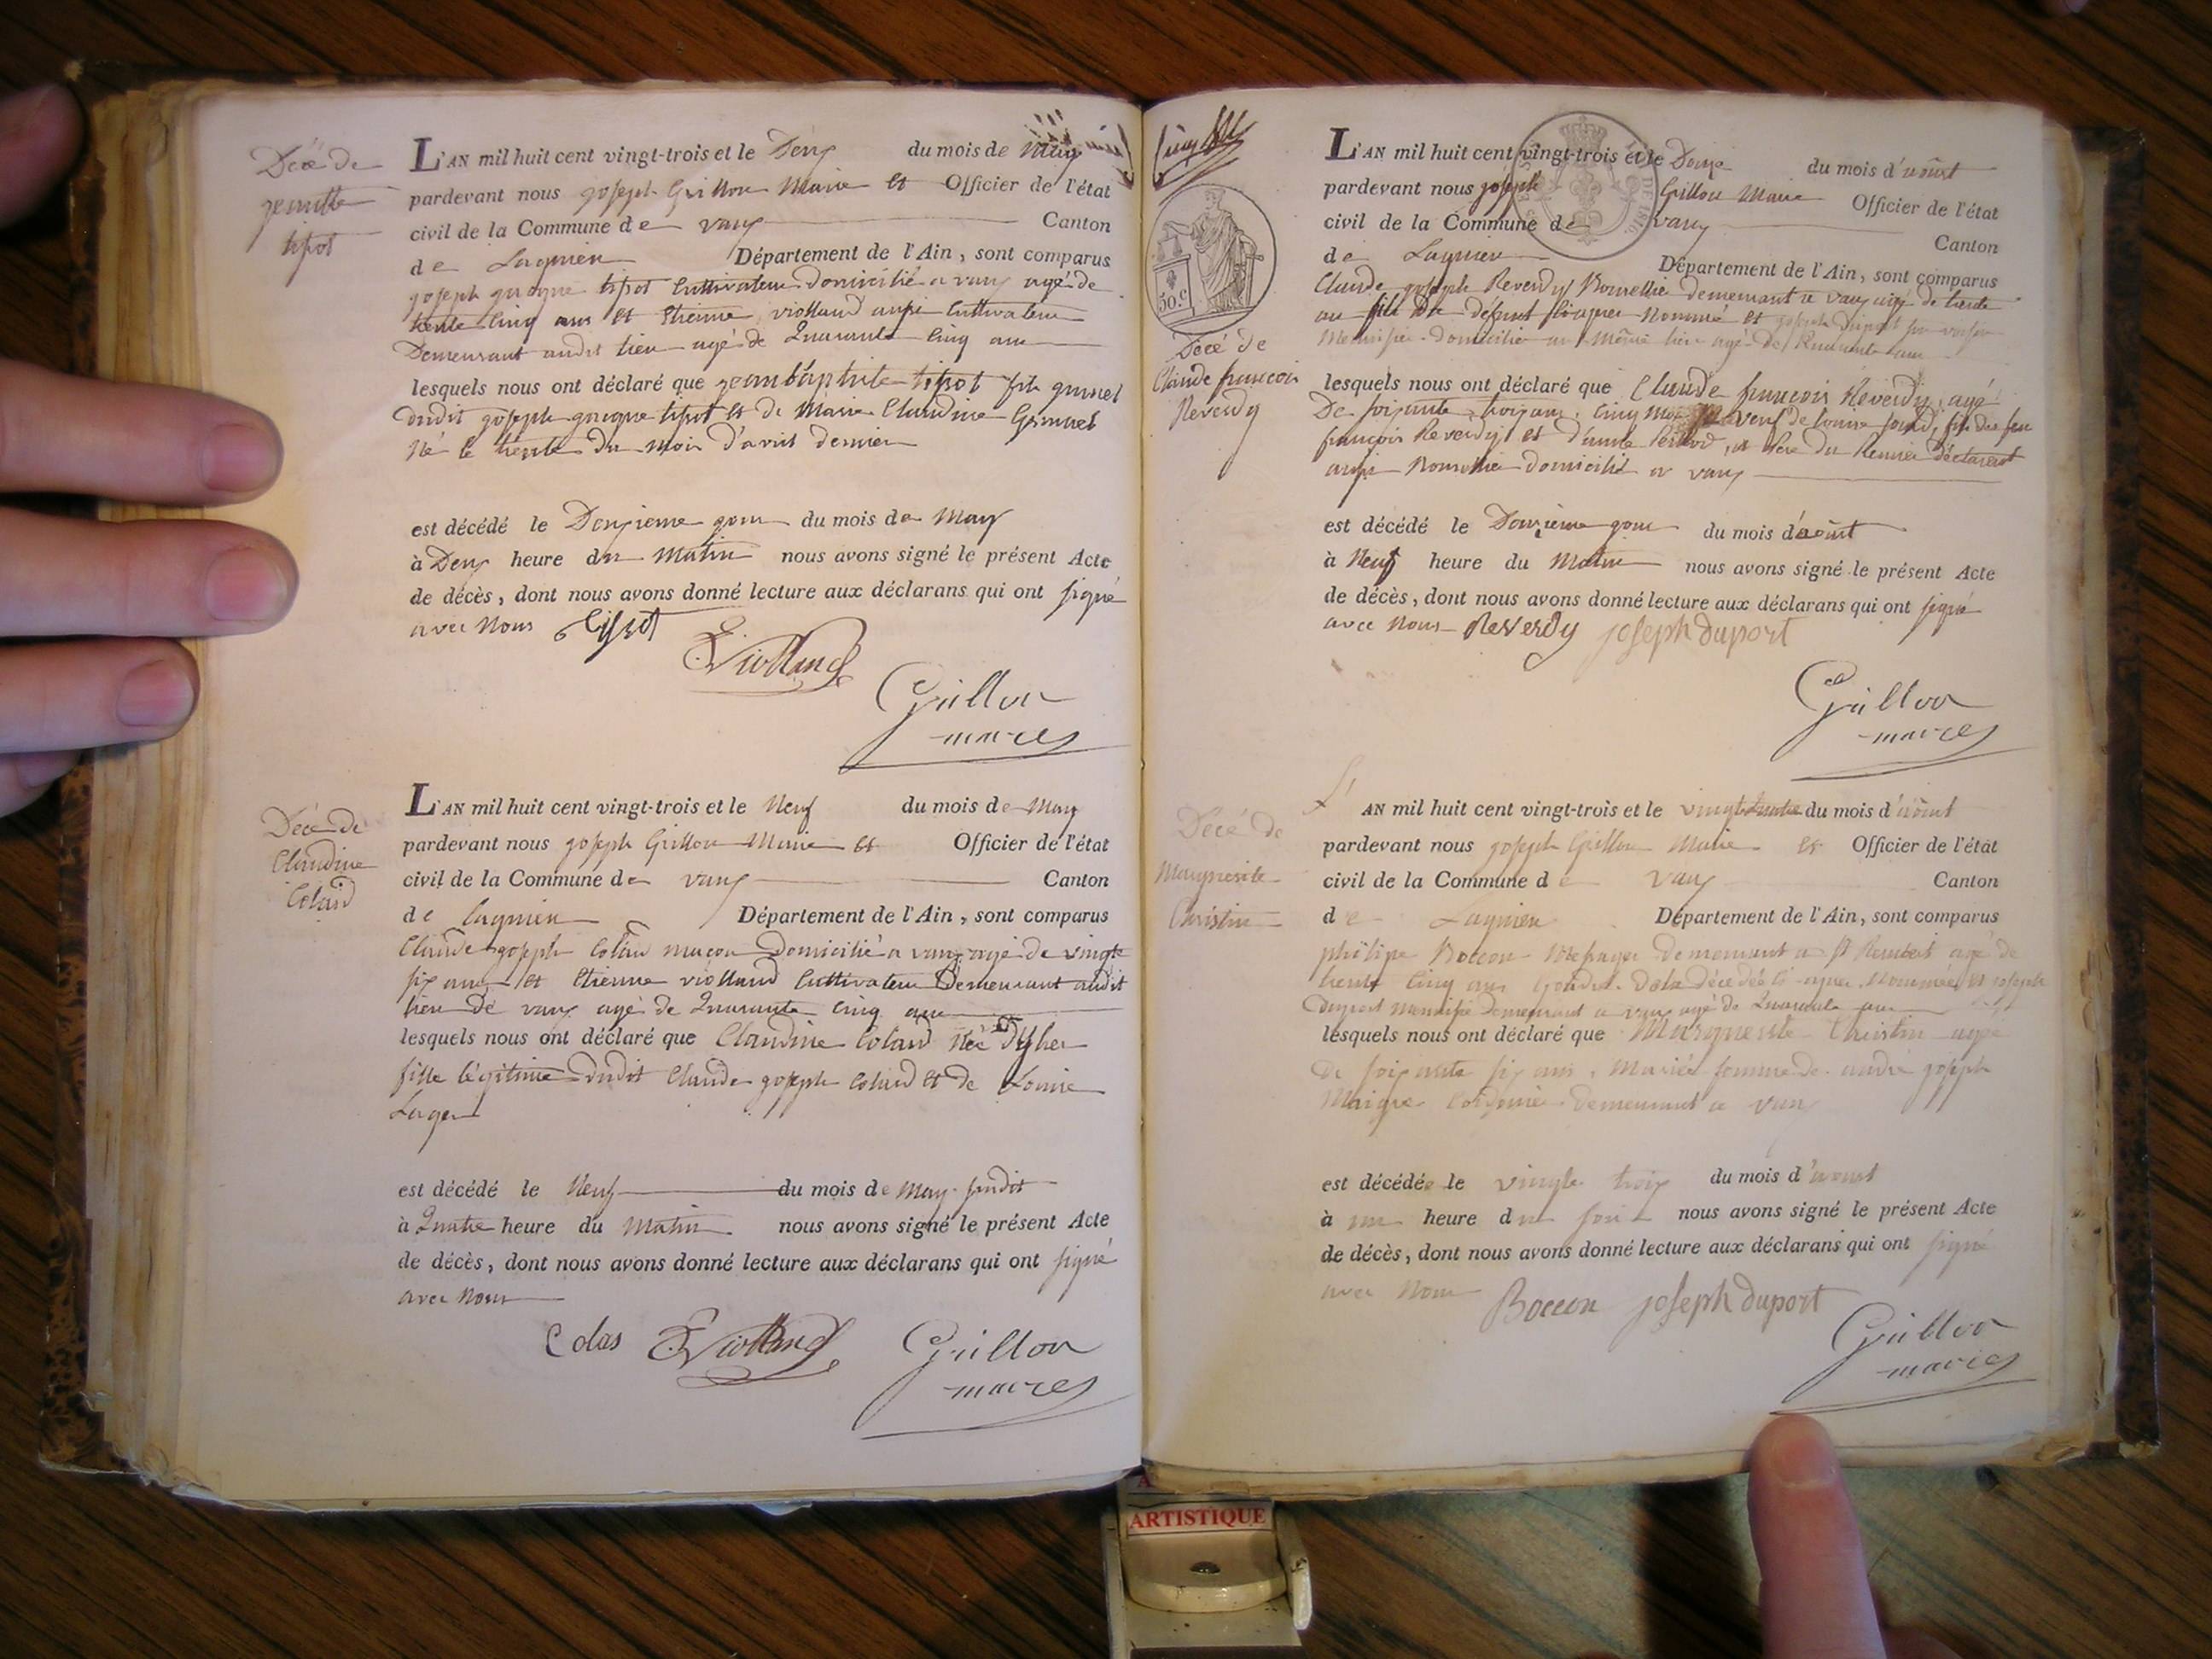 Décé de
jeanette
tipot
L'AN mil huit cent vingt-trois et le Deux du mois de may
pardevant nous joseph Grillon Maire et Officier de l'état
civil de la Commune de vaux Canton
de Lagnieu Département de l'Ain, sont comparus
joseph tipot Cultivateur domicilié a vaux agé de
trente Cinq ans et Etienne violland aussi Cultivateur
Demeurant audit lieu agé de Quarante Cinq ans
lesquels nous ont déclaré que jean baptiste tipot fils
dudit joseph tipot et de Marie Claudine
Né le trente du mois d'avril dernier
est décédé le Deuxieme jour du mois de May
à Deux heure du Matin nous avons signé le présent Acte
de décès, dont nous avons donné lecture aux déclarans qui ont signé
avec Nous
E Violland
Grillon
maire
Décé de
Claudine
Colard
L'AN mil huit cent vingt-trois et le Neuf du mois de May
pardevant nous joseph Grillon Maire et Officier de l'état
civil de la Commune de vaux Canton
de lagnieu Département de l'Ain, sont comparus
Claude joseph Colard maçon domicilié a vaux agé de vingt
six ans et Etienne violland Cultivateur Demeurant audit
lieu de vaux agé de Quarante Cinq ans
lesquels nous ont déclaré que Claudine Colard Née
fille légitime dudit Claude joseph Colard et de Louise
Lager
est décédé le Neuf du mois de May susdit
à Quatre heure du Matin nous avons signé le présent Acte
de décès, dont nous avons donné lecture aux déclarans qui ont signé
avec Nous
Colas E Violland Grillon
maire
50.c
Décé de
Claude francois
Reverdy
L'AN mil huit cent vingt-trois et le Douze du mois d'aoüst
pardevant nous joseph Grillon Maire Officier de l'état
civil de la Commune de vaux Canton
de Lagnieu Département de l'Ain, sont comparus
Claude joseph Reverdy Bourellie demeurant a vaux agé de trente
ans fils du défunt Nommé et joseph Duport son voisin
Menusier domicilié au Même lieu agé de Quarante ans
lesquels nous ont déclaré que Claude françois Reverdy, agé
De soixante, trois ans, Cinq Mois veuf de louise fils des feu
françois Reverdy et d'anne et Père du Premier déclarant
aussi Bourellie domicilié a vaux
est décédé le Douzieme jour du mois d'aoüst
à Neuf heure du Matin nous avons signé le présent Acte
de décès, dont nous avons donné lecture aux déclarans qui ont signé
avec Nous Reverdy joseph duport
Grillon
maire
Décé de
Marguerite
Christin
L'AN mil huit cent vingt-trois et le vingt quatre du mois d'aoüst
pardevant nous joseph Grillon Maire et Officier de l'état
civil de la Commune de vaux Canton
de Lagnieu Département de l'Ain, sont comparus
philipe Boccon demeurant a St Rambert agé de
trente Cinq ans Gendre de la décédée Nommée et joseph
Duport menusier Demeurant a vaux agé de Quarante ans
lesquels nous ont déclaré que Marguerite Christin agée
de soixante six ans, Mariée femme de andré joseph
Maigre Cordonier demeurant a vaux
est décédée le vingte trois du mois d'aoust
à une heure du soir nous avons signé le présent Acte
de décès, dont nous avons donné lecture aux déclarans qui ont signé
avec Nous
Boccon joseph duport
Grillon
maire
ARTISTIQUE